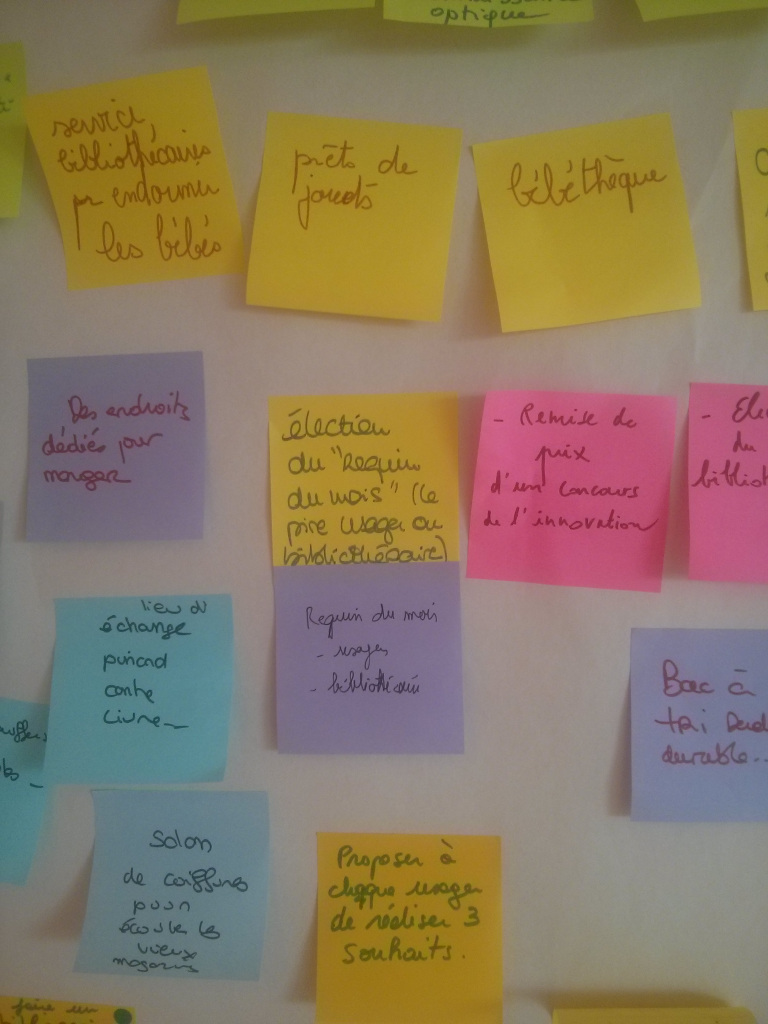 optique
service
bibliothécaires
pr endormir
les bébés
prêts de
jouets
bébéthèque
Des endroits
dédiés pour
manger
élection
du "Requin
du mois" (le
pire usager ou
bibliothécaire)
- Remise de
prix
d'un concours
de l'innovation
- Ele
du
bibliot
Requin du mois
- usager
- bibliothécaire
lieu d'
échange
contre
Livre
Bac à
tri
durable...
Salon
de coiffures
pour
écouler les
vieux
magazines
Proposer à
chaque usager
de réaliser 3
souhaits.
faire un